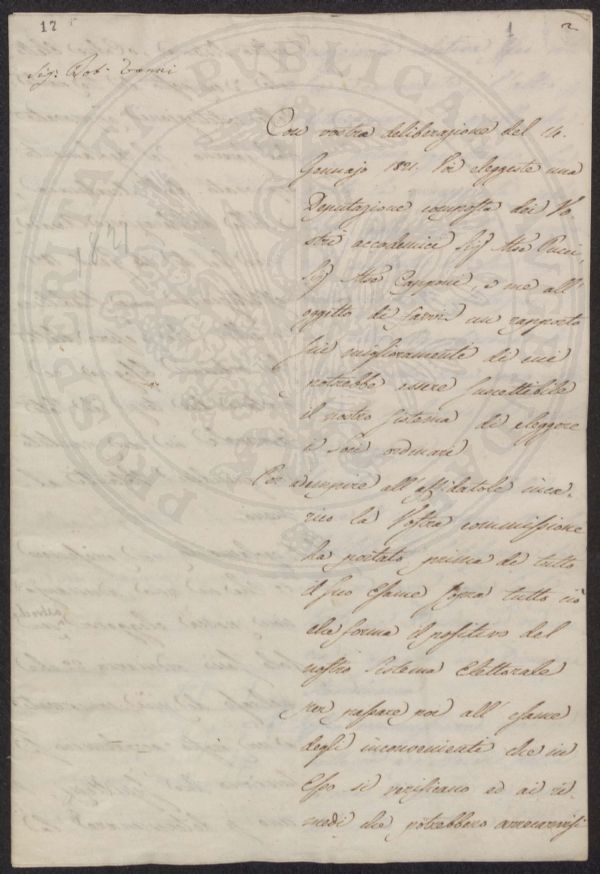 12
1
2
Sig. Dot. Vanni
Con vostra deliberazione del 14.
Gennajo 1821. Voi eleggeste una
Deputazione composta dei Vo-
stri accademici Sig. Mse Pucci,
Sig. Mse Capponi, e me all'
oggetto di farvi un rapporto
sui miglioramenti di cui
potrebbe essere suscettibile
il nostro sistema di eleggere
i Soci ordinari
1821
Per adempire all'affidatole inca-
rico la Vostra commissione
ha portato prima di tutto
il suo esame sopra tutto ciò
che forma il positivo del
nostro Sistema Elettorale
per passare poi all'esame
degli inconvenienti che in
Esso si verificano ed ai ri-
medi che potrebbero arrecarvisi
PROSPERITATI PUBLICAE